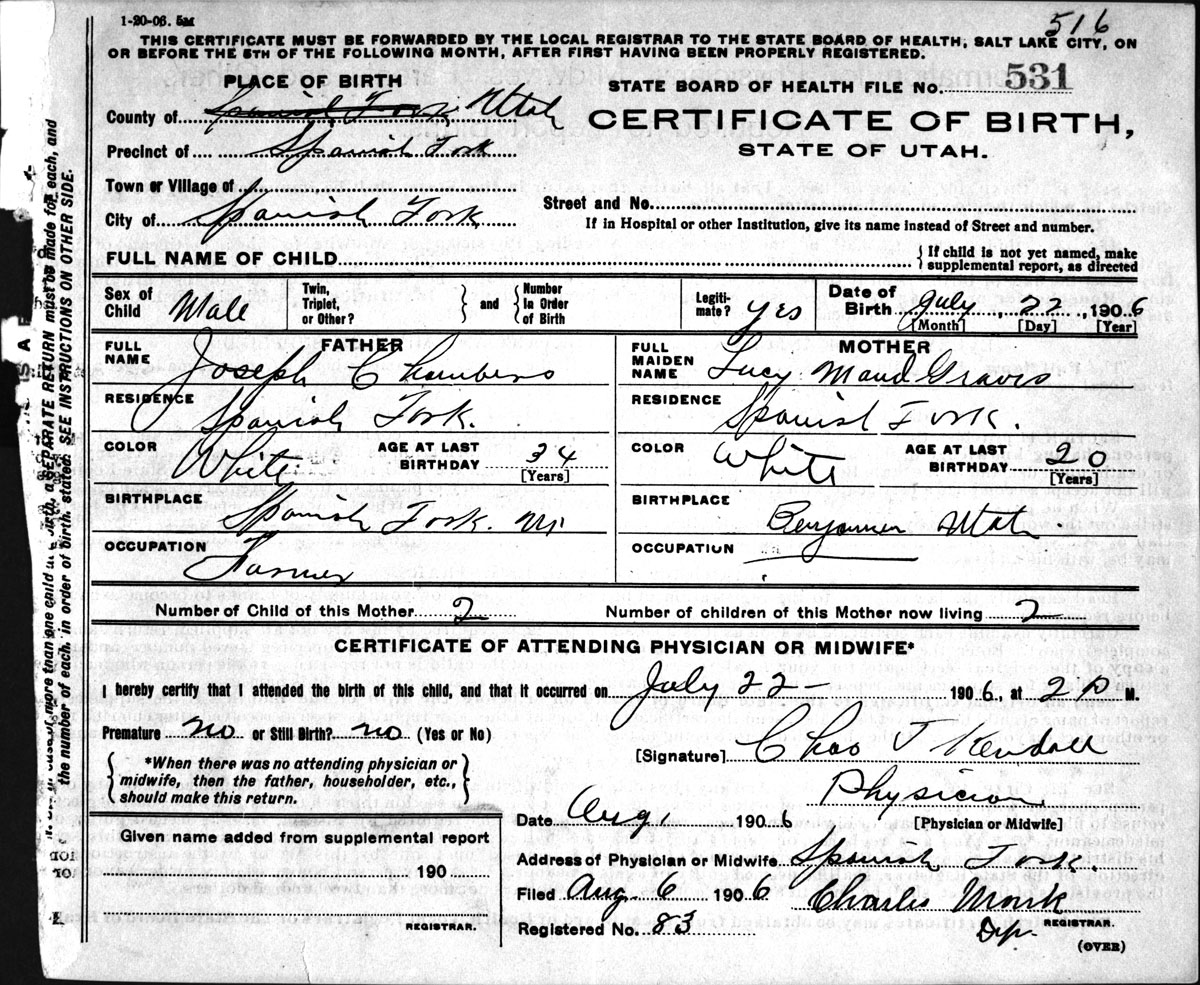 1-20-06. 5M
516
THIS CERTIFICATE MUST BE FORWARDED BY THE LOCAL REGISTRAR TO THE STATE BOARD OF HEALTH, SALT LAKE CITY, ON
OR BEFORE THE 5TH OF THE FOLLOWING MONTH, AFTER FIRST HAVING BEEN PROPERLY REGISTERED.
PLACE OF BIRTH
STATE BOARD OF HEALTH FILE NO. 531
County of Spanish Fork Utah
CERTIFICATE OF BIRTH,
Precinct of Spanish Fork
STATE OF UTAH.
Town or Village of
Street and No.
City of Spanish Fork
If in Hospital or other Institution, give its name instead of Street and number.
FULL NAME OF CHILD
{ If child is not yet named, make
supplemental report, as directed
Sex of Child Male
Twin, Triplet, or Other? } and { Number in Order of Birth
Legiti- mate? yes
Date of Birth July, 22, 1906
[Month] [Day] [Year]
FATHER
FULL NAME Joseph Chambers
RESIDENCE Spanish Fork.
COLOR White
AGE AT LAST BIRTHDAY 34
[Years]
BIRTHPLACE Spanish Fork.
OCCUPATION Farmer
MOTHER
FULL MAIDEN NAME Lucy Maud Graves
RESIDENCE Spanish Fork.
COLOR White
AGE AT LAST BIRTHDAY 20
[Years]
BIRTHPLACE Benjamin Utah
OCCUPATION
Number of Child of this Mother 2
Number of children of this Mother now living 2
CERTIFICATE OF ATTENDING PHYSICIAN OR MIDWIFE*
I hereby certify that I attended the birth of this child, and that it occurred on July 22- 1906, at 2 P M.
Premature no or Still Birth? no (Yes or No)
[Signature] Chas T Kendall
{ *When there was no attending physician or
midwife, then the father, householder, etc.,
should make this return. }
Physician
[Physician or Midwife]
Date Aug 1 1906
Address of Physician or Midwife Spanish Fork
Filed Aug. 6 1906 Charles Monk
Dep. REGISTRAR.
Registered No. 83
(OVER)
Given name added from supplemental report
190
REGISTRAR.
more than one child a SEPARATE RETURN must be made for each, and
the number of each, in order of birth, stated. SEE INSTRUCTIONS ON OTHER SIDE.